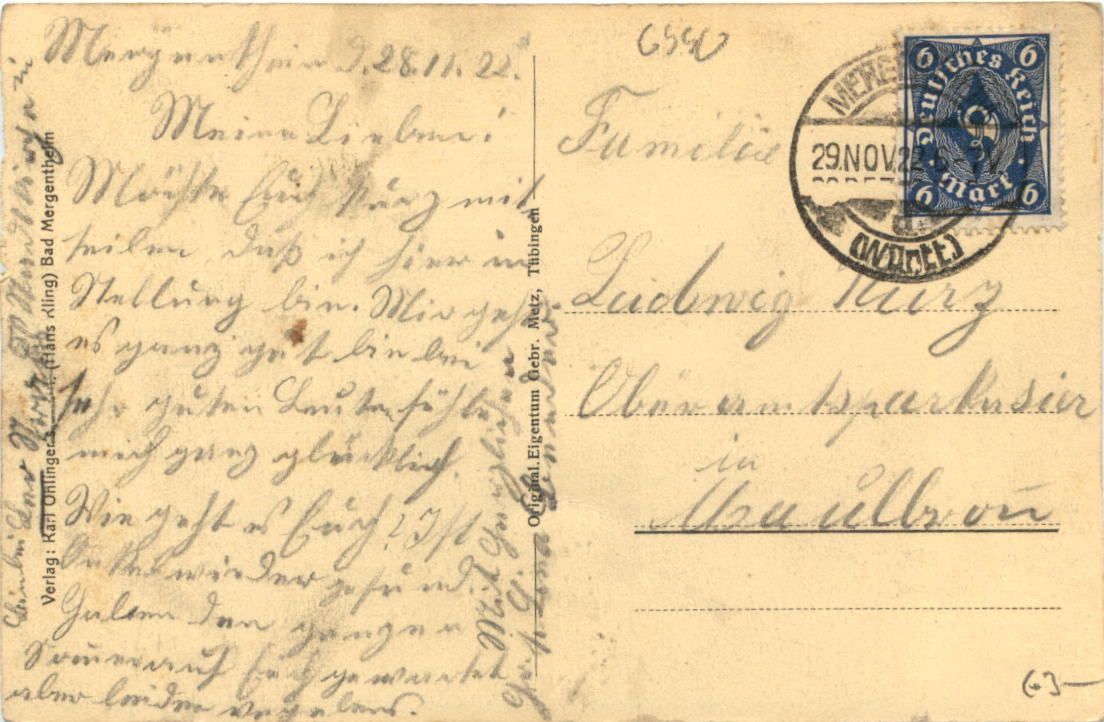 Mergentheim d. 28.11.22.
Meine Lieben!
Möchte Euch kurz mit
teilen daß ich hier in
Stellung bin. Mir geht
es ganz gut bin bei
sehr guten Leuten fühle
mich ganz glücklich.
Wie geht es Euch? Ist
wieder gesund.
Haben den ganzen
Sommer auf Euch gewartet
aber leider vergebens.
Mit herzlichen
Verlag: Karl Ohlinger's (Hans Kling) Bad Mergentheim
Original. Eigentum Gebr. Metz, Tübingen
6550
Familie
Ludwig Kurz
Oberamtsparkasier
in
Maulbronn
MERG
29.NOV.22 6-7V
(WÜRTT.)
6 6
Deutsches Reich
Mark
6 6